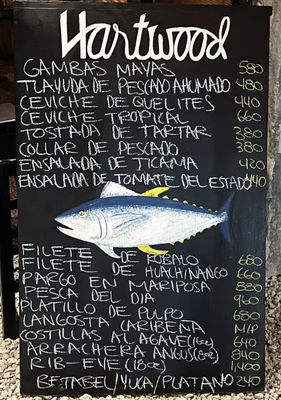 Hartwood
GAMBAS MAYAS 580
TLAYUDA DE PESCADO AHUMADO 480
CEVICHE DE QUELITES 440
CEVICHE TROPICAL 660
TOSTADA DE TARTAR 380
COLLAR DE PESCADO 380
ENSALADA DE JICAMA 420
ENSAILADA DE TOMATE DEL ESTADO 440
FILETE DE ROBALO 680
FILETE DE HUACHINANGO 660
PARGO EN MARIPOSA 880
PESCA DEL DIA 960
PLATILLO DE PULPO 680
LANGOSTA CARIBEÑA M/P
COSTILLAS AL AGAVE (16oz) 840
ARRACHERA ANGUS (8oz) 840
RIB-EYE (18oz) 1,400
BETABEL/YUCA/PLATANO 240